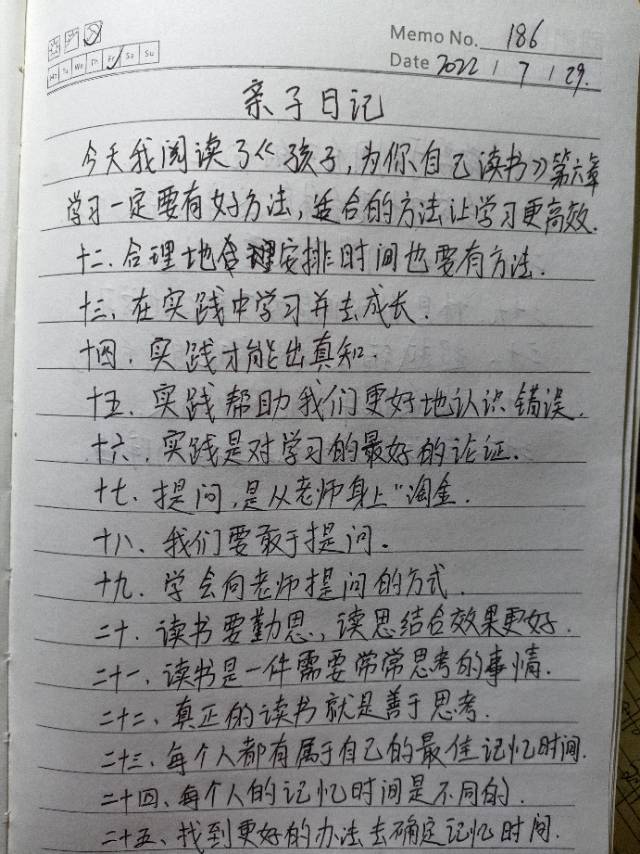 Memo No. 186
Mo Tu We Th Fr Sa Su
Date 2022 / 7 / 29.
亲子日记
今天我阅读了《孩子,为你自己读书》第六章
学习一定要有好方法,适合的方法让学习更高效.
十二.合理地安排时间也要有方法.
十三、在实践中学习并去成长.
十四.实践才能出真知.
十五.实践帮助我们更好地认识错误.
十六.实践是对学习的最好的论证.
十七.提问,是从老师身上“淘金.
十八、我们要敢于提问。
十九.学会向老师提问的方式.
二十.读书要勤思,读思结合效果更好.
二十一、读书是一件需要常常思考的事情.
二十二、真正的读书就是善于思考.
二十三、每个人都有属于自己的最佳记忆时间.
二十四、每个人的记忆时间是不同的.
二十五、找到更好的办法去确定记忆时间.